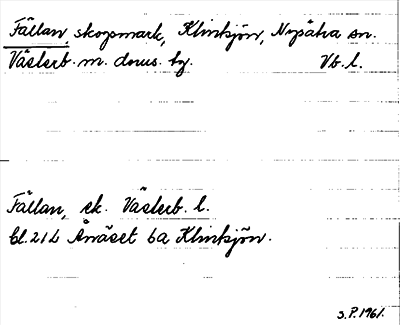 Fällan, skogsmark, Klinksjön, Nysätra sn.
Västerb. m. doms. bg. Vb. l.
Fällan, sk. Västerb. l.
bl. 21L Ånäset 6a Klinksjön.
S.P. 1961.